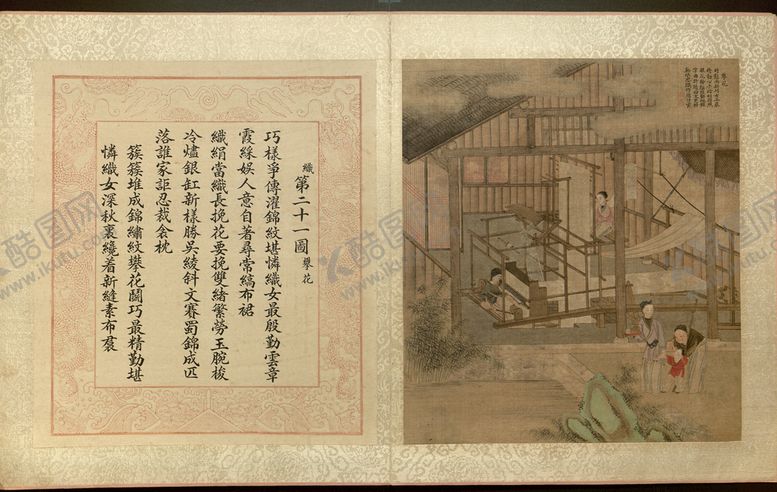 織第二十一圖 攀花
巧樣爭傳濯錦紋堪憐織女最殷勤雲章
霞綵娛人意自著尋常縞布裙
織絹當織長挽花要挽雙緒繁勞玉腕梭
冷燼銀缸新樣勝吳綾斜文賽蜀錦成匹
落誰家詎忍裁衾枕
簇簇堆成錦繡紋攀花鬪巧最精勤堪
憐織女深秋裏纔着新縫素布裠
攀花
酷图网
www.ikutu.com